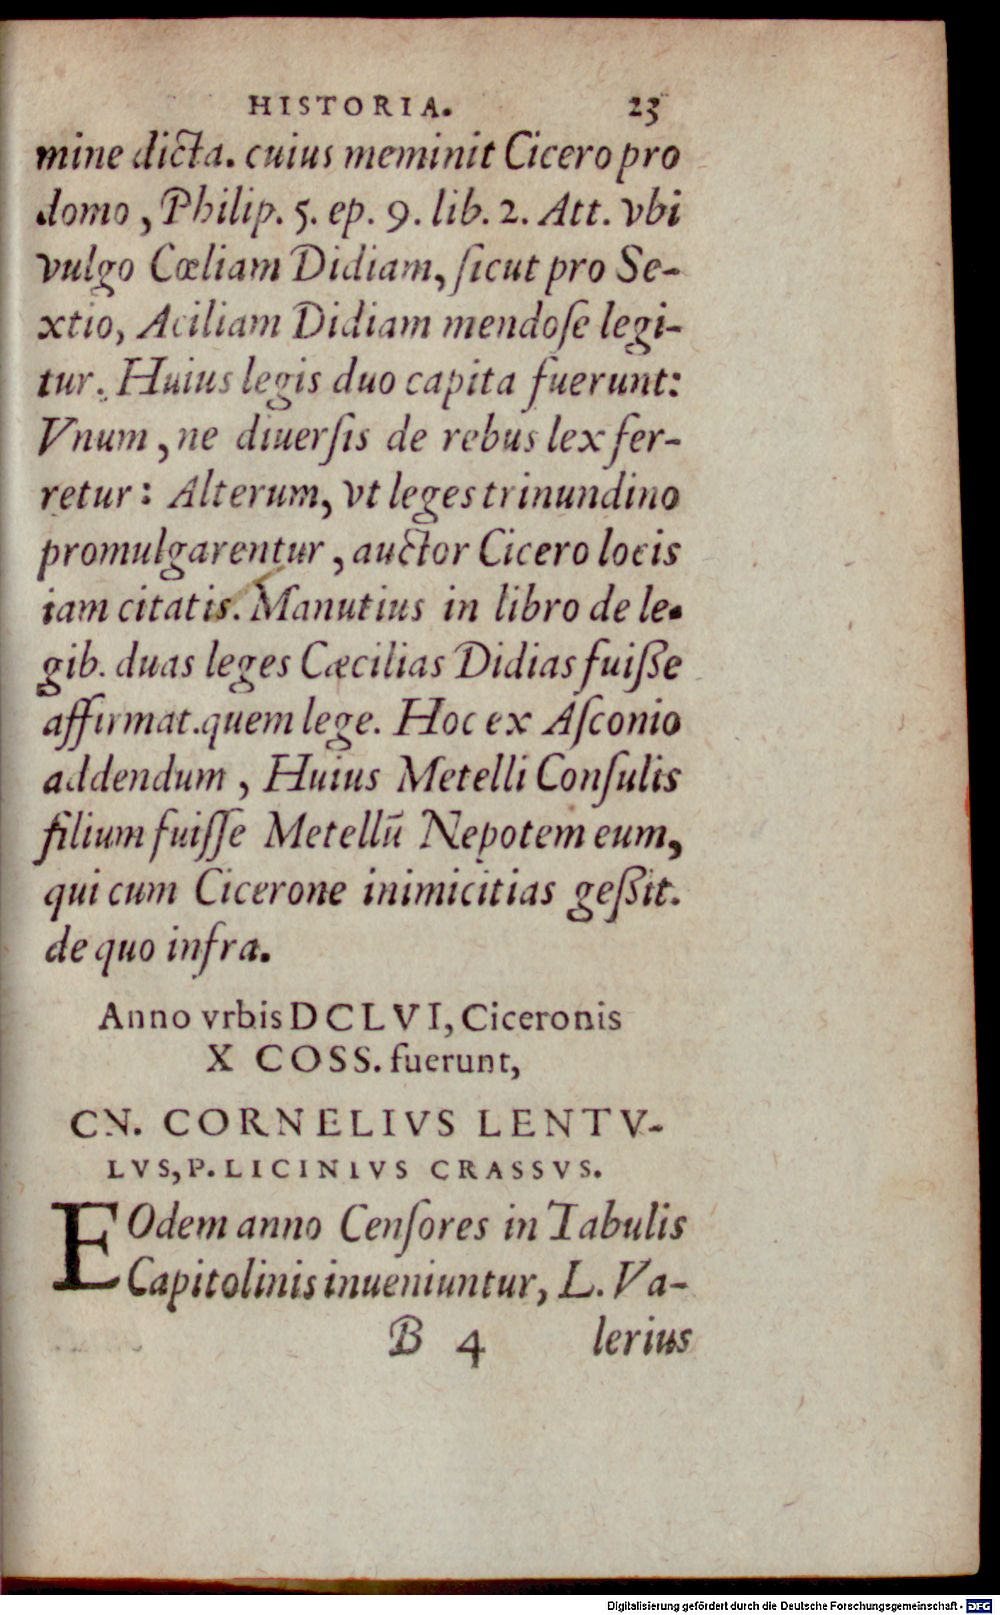 HISTORIA. 23
mine dicta. cuius meminit Cicero pro
domo, Philip. 5. ep. 9. lib. 2. Att. vbi
vulgo Cœliam Didiam, ſicut pro Se-
xtio, Aciliam Didiam mendoſe legi-
tur. Huius legis duo capita fuerunt:
Vnum, ne diuerſis de rebus lex fer-
retur: Alterum, vt leges trinundino
promulgarentur, auctor Cicero locis
iam citatis. Manutius in libro de le-
gib. duas leges Cæcilias Didias fuiſſe
affirmat. quem lege. Hoc ex Aſconio
addendum, Huius Metelli Conſulis
filium fuiſſe Metellū Nepotem eum,
qui cum Cicerone inimicitias geſſit.
de quo infra.
Anno vrbis DCLVI, Ciceronis
X COSS. fuerunt,
CN. CORNELIVS LENTV-
LVS, P. LICINIVS CRASSVS.
EOdem anno Cenſores in Tabulis
Capitolinis inueniuntur, L. Va-
B 4 lerius
Digitalisierung gefördert durch die Deutsche Forschungsgemeinschaft - DFG